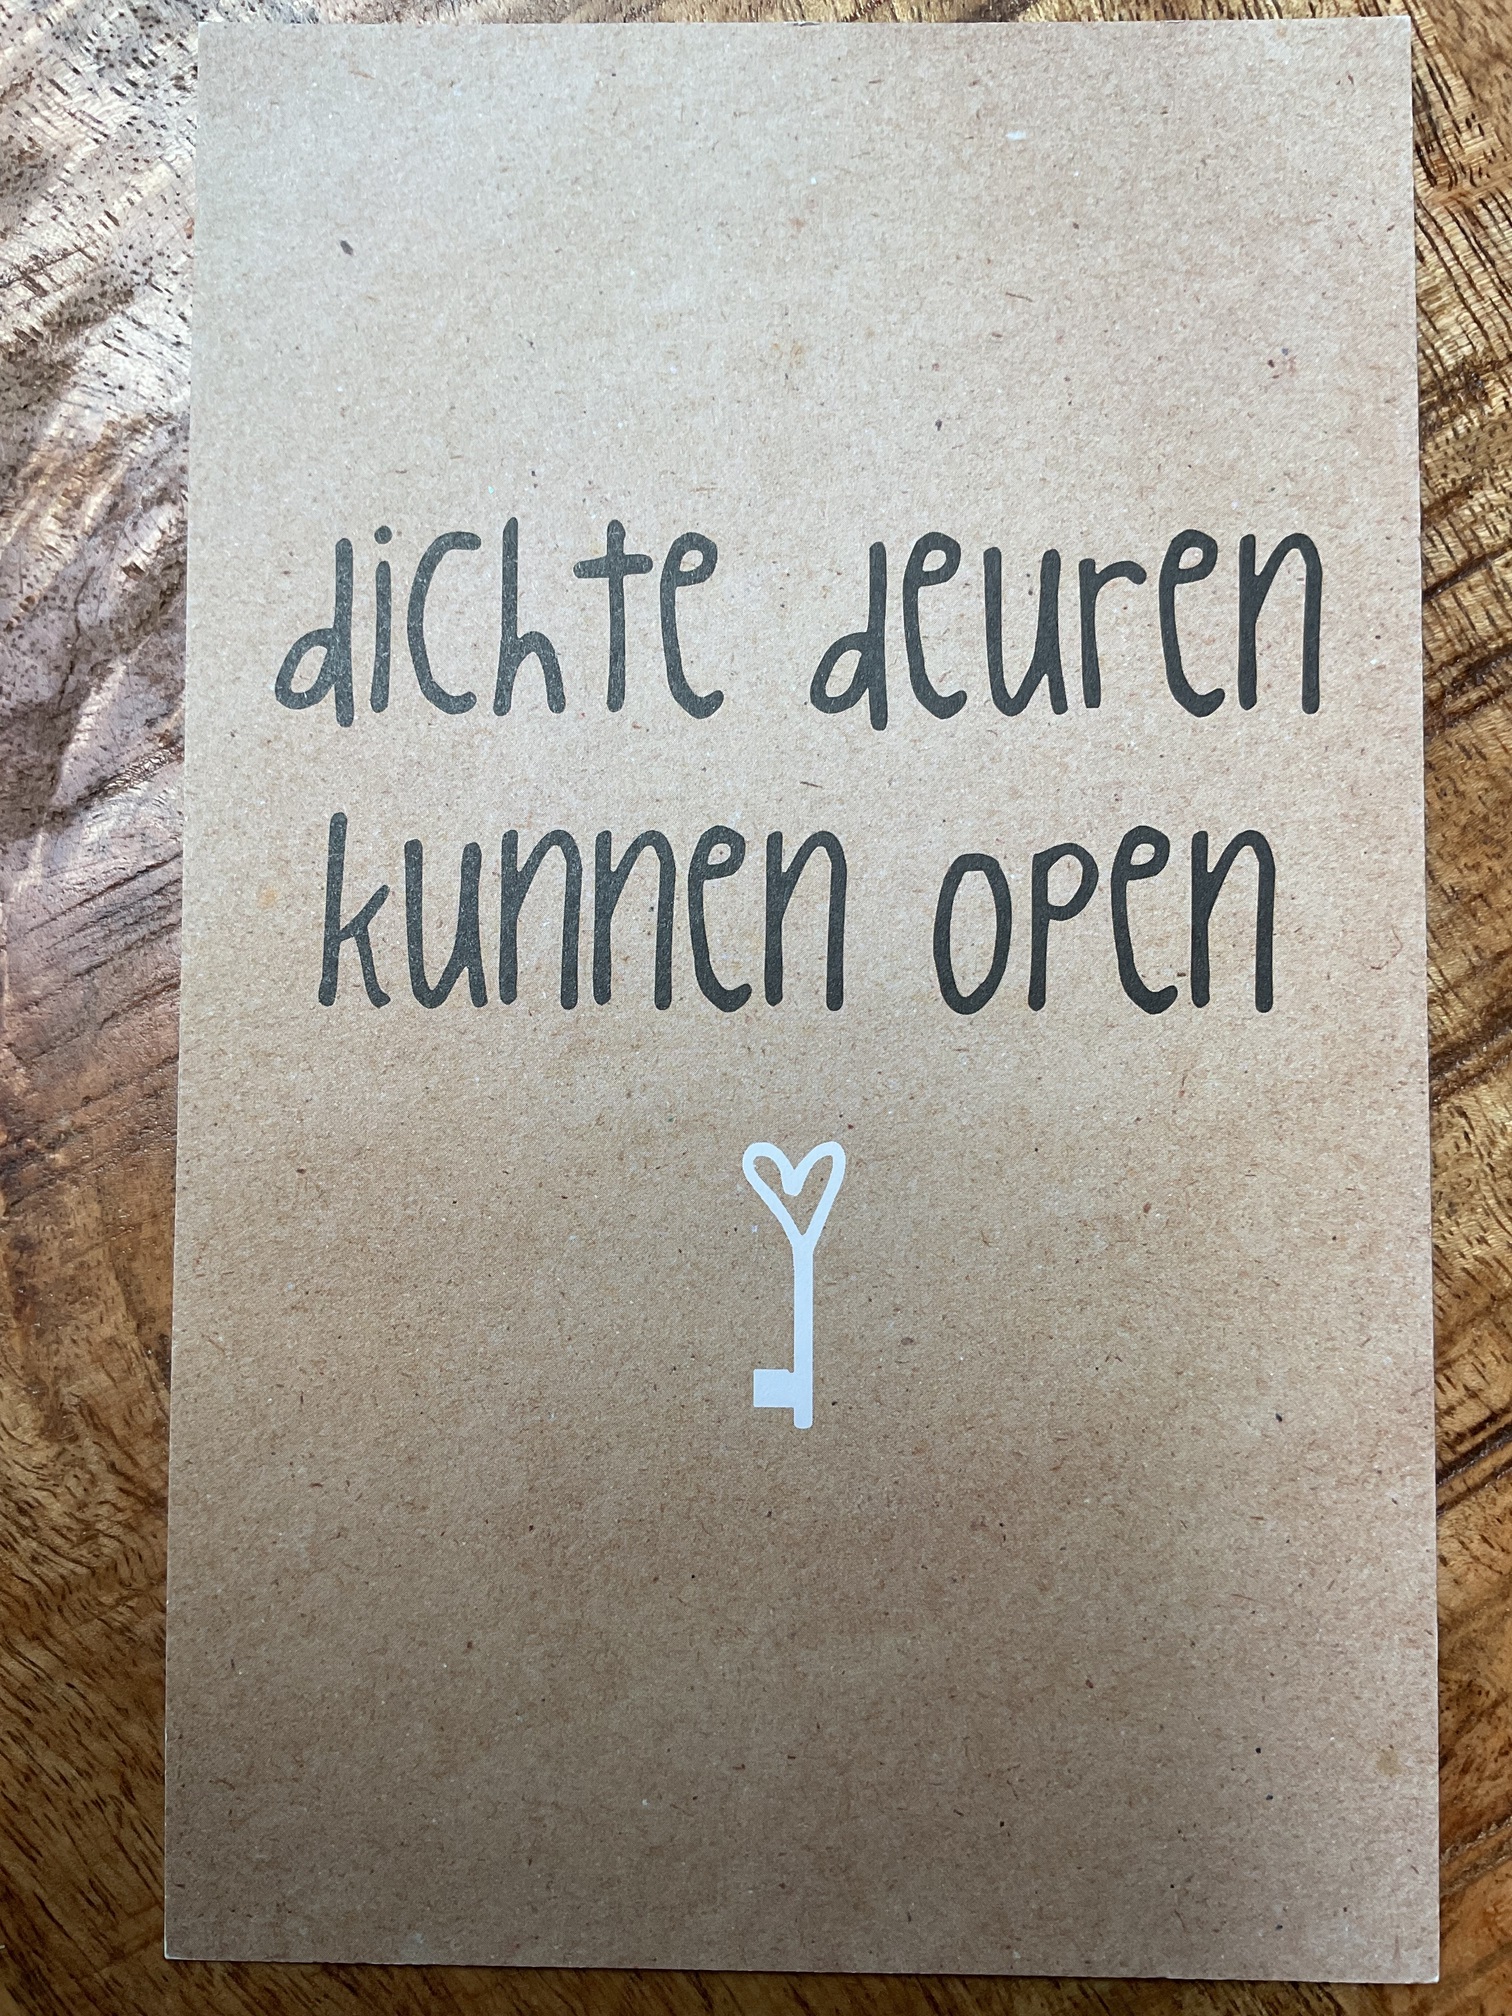 dichte deuren
kunnen open